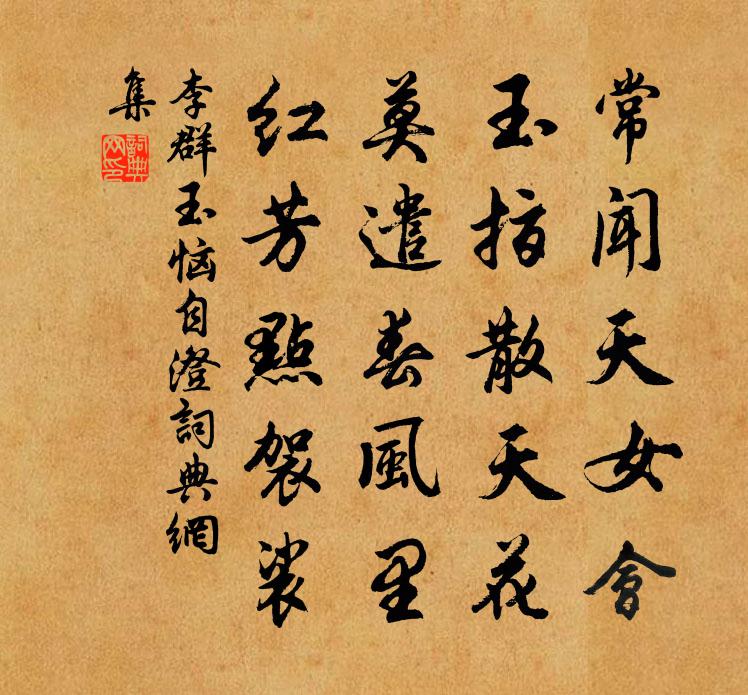 常聞天女會
玉指散天花
莫遣春風里
紅芳點袈裟
李群玉惱自澄詞典網
集
詞典网印